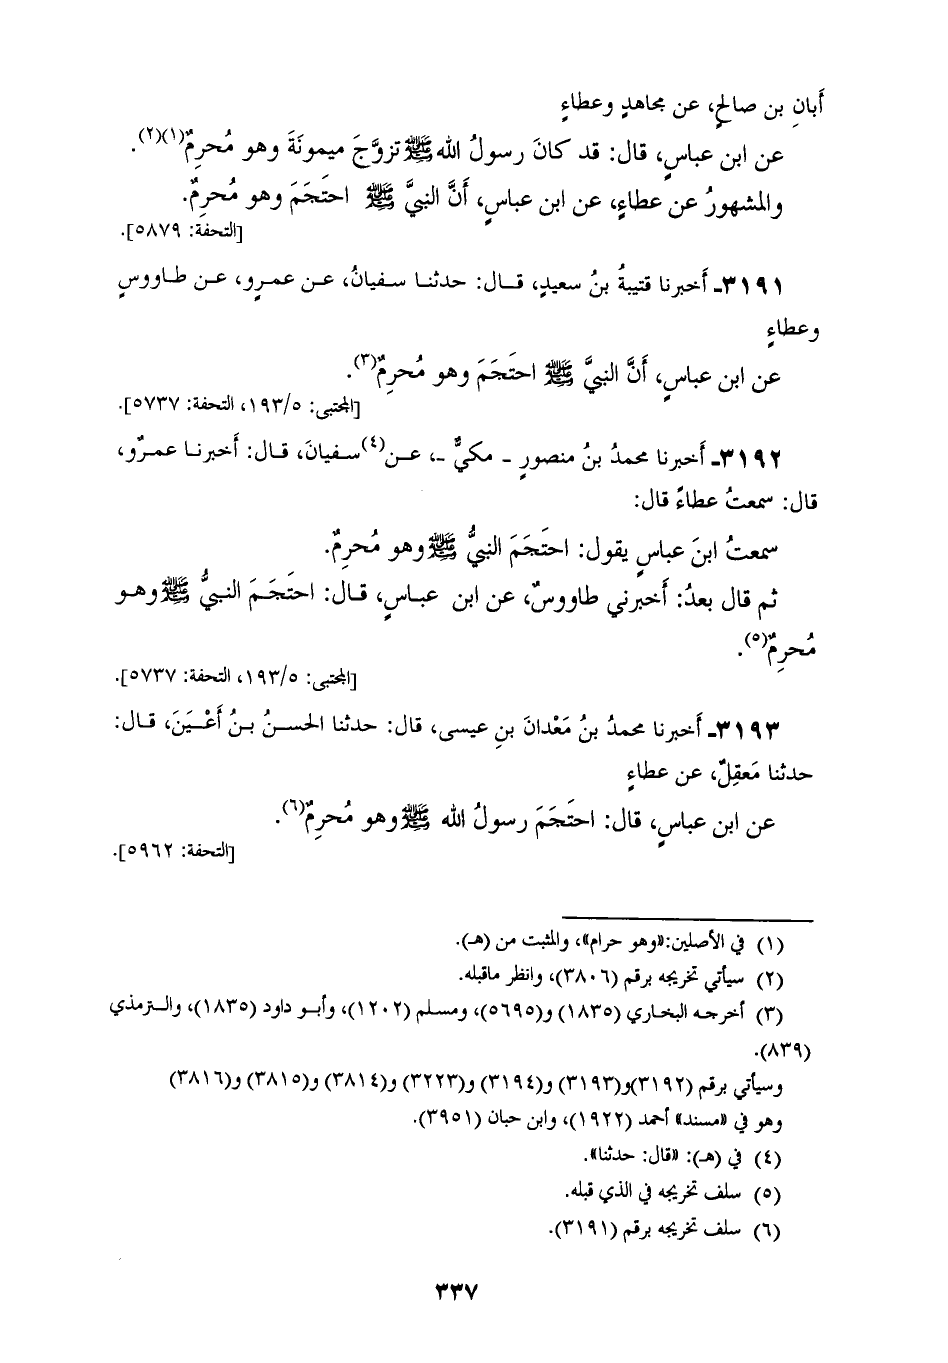 أَبانِ بن صالحٍ، عن مجاهدٍ وعطاءٍ
عن ابن عباسٍ، قال: قد كانَ رسولُ الله ﷺ تزوَّجَ ميمونَةَ وهو مُحرِمٌ(١)(٢).
والمشهورُ عن عطاءٍ، عن ابن عباسٍ، أَنَّ النبيَّ ﷺ احتَجَمَ وهو مُحرِمٌ.
[التحفة: ٥٨٧٩].
٣١٩١ـ أَخبرنا قتيبةُ بنُ سعيدٍ، قال: حدثنا سفيانُ، عن عمرٍو، عن طاووسٍ
وعطاءٍ
عن ابن عباسٍ، أَنَّ النبيَّ ﷺ احتَجَمَ وهو مُحرِمٌ(٣).
[المجتبى: ١٩٣/٥، التحفة: ٥٧٣٧].
٣١٩٢ـ أَخبرنا محمدُ بنُ منصورٍ - مكيٌّ -، عن(٤) سفيانَ، قال: أَخبرنا عمرٌو،
قال: سمعتُ عطاءً قال:
سمعتُ ابنَ عباسٍ يقول: احتَجَمَ النبيُّ ﷺ وهو مُحرِمٌ.
ثم قال بعدُ: أَخبرني طاووسٌ، عن ابن عباسٍ، قال: احتَجَمَ النبيُّ ﷺ وهو
مُحرِمٌ(٥).
[المجتبى: ١٩٣/٥، التحفة: ٥٧٣٧].
٣١٩٣ـ أَخبرنا محمدُ بنُ مَعْدانَ بنِ عيسى، قال: حدثنا الحسنُ بنُ أَعْيَنَ، قال:
حدثنا مَعقِلٌ، عن عطاءٍ
عن ابن عباسٍ، قال: احتَجَمَ رسولُ الله ﷺ وهو مُحرِمٌ(٦).
[التحفة: ٥٩٦٢].
(١) في الأصلين: «وهو حرام»، والمثبت من (هـ).
(٢) سيأتي تخريجه برقم (٣٨٠٦)، وانظر ماقبله.
(٣) أخرجه البخاري (١٨٣٥) و(٥٦٩٥)، ومسلم (١٢٠٢)، وأبو داود (١٨٣٥)، والترمذي
(٨٣٩).
وسيأتي برقم (٣١٩٢)و(٣١٩٣) و(٣١٩٤) و(٣٢٢٣) و(٣٨١٤) و(٣٨١٥) و(٣٨١٦)
وهو في «مسند» أحمد (١٩٢٢)، وابن حبان (٣٩٥١).
(٤) في (هـ): «قال: حدثنا».
(٥) سلف تخريجه في الذي قبله.
(٦) سلف تخريجه برقم (٣١٩١).
٣٣٧